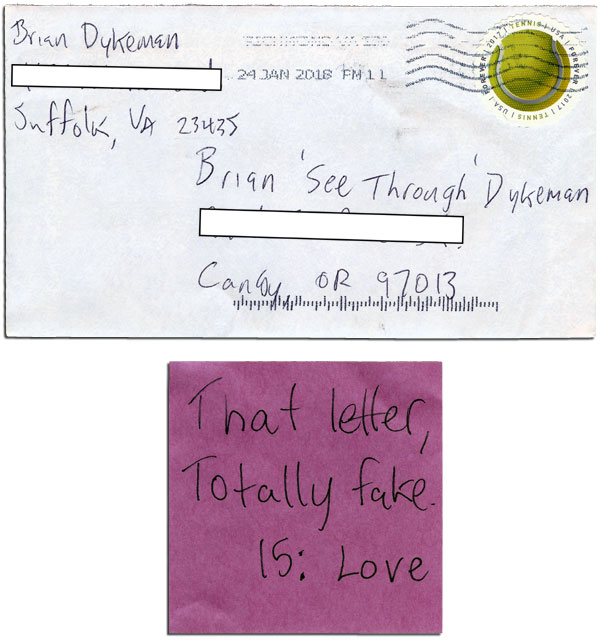 Brian Dykeman
Suffolk, VA 23435
RICHMOND VA 230
24 JAN 2018 PM 1 1
FOREVER | 2017 | TENNIS | USA | FOREVER | 2017 | TENNIS | USA |
Brian 'See Through' Dykeman
Canby, OR 97013
That letter,
Totally fake.
15: Love